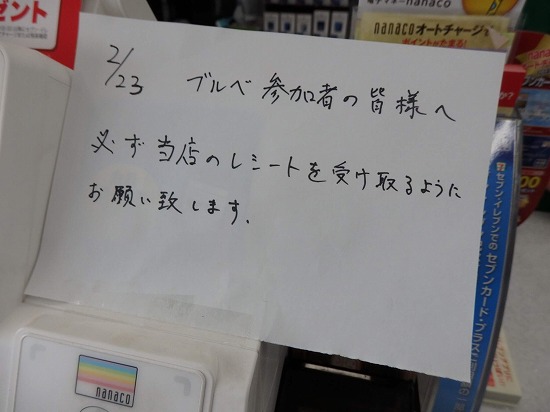 ゼント
電子マネーnanaco
nanacoオートチャージで
ポイントがたまる!
2/23 ブルベ参加者の皆様へ
必ず当店のレシートを受け取るように
お願い致します.
セブン-イレブンでの
セブンカード・プラス
nanaco